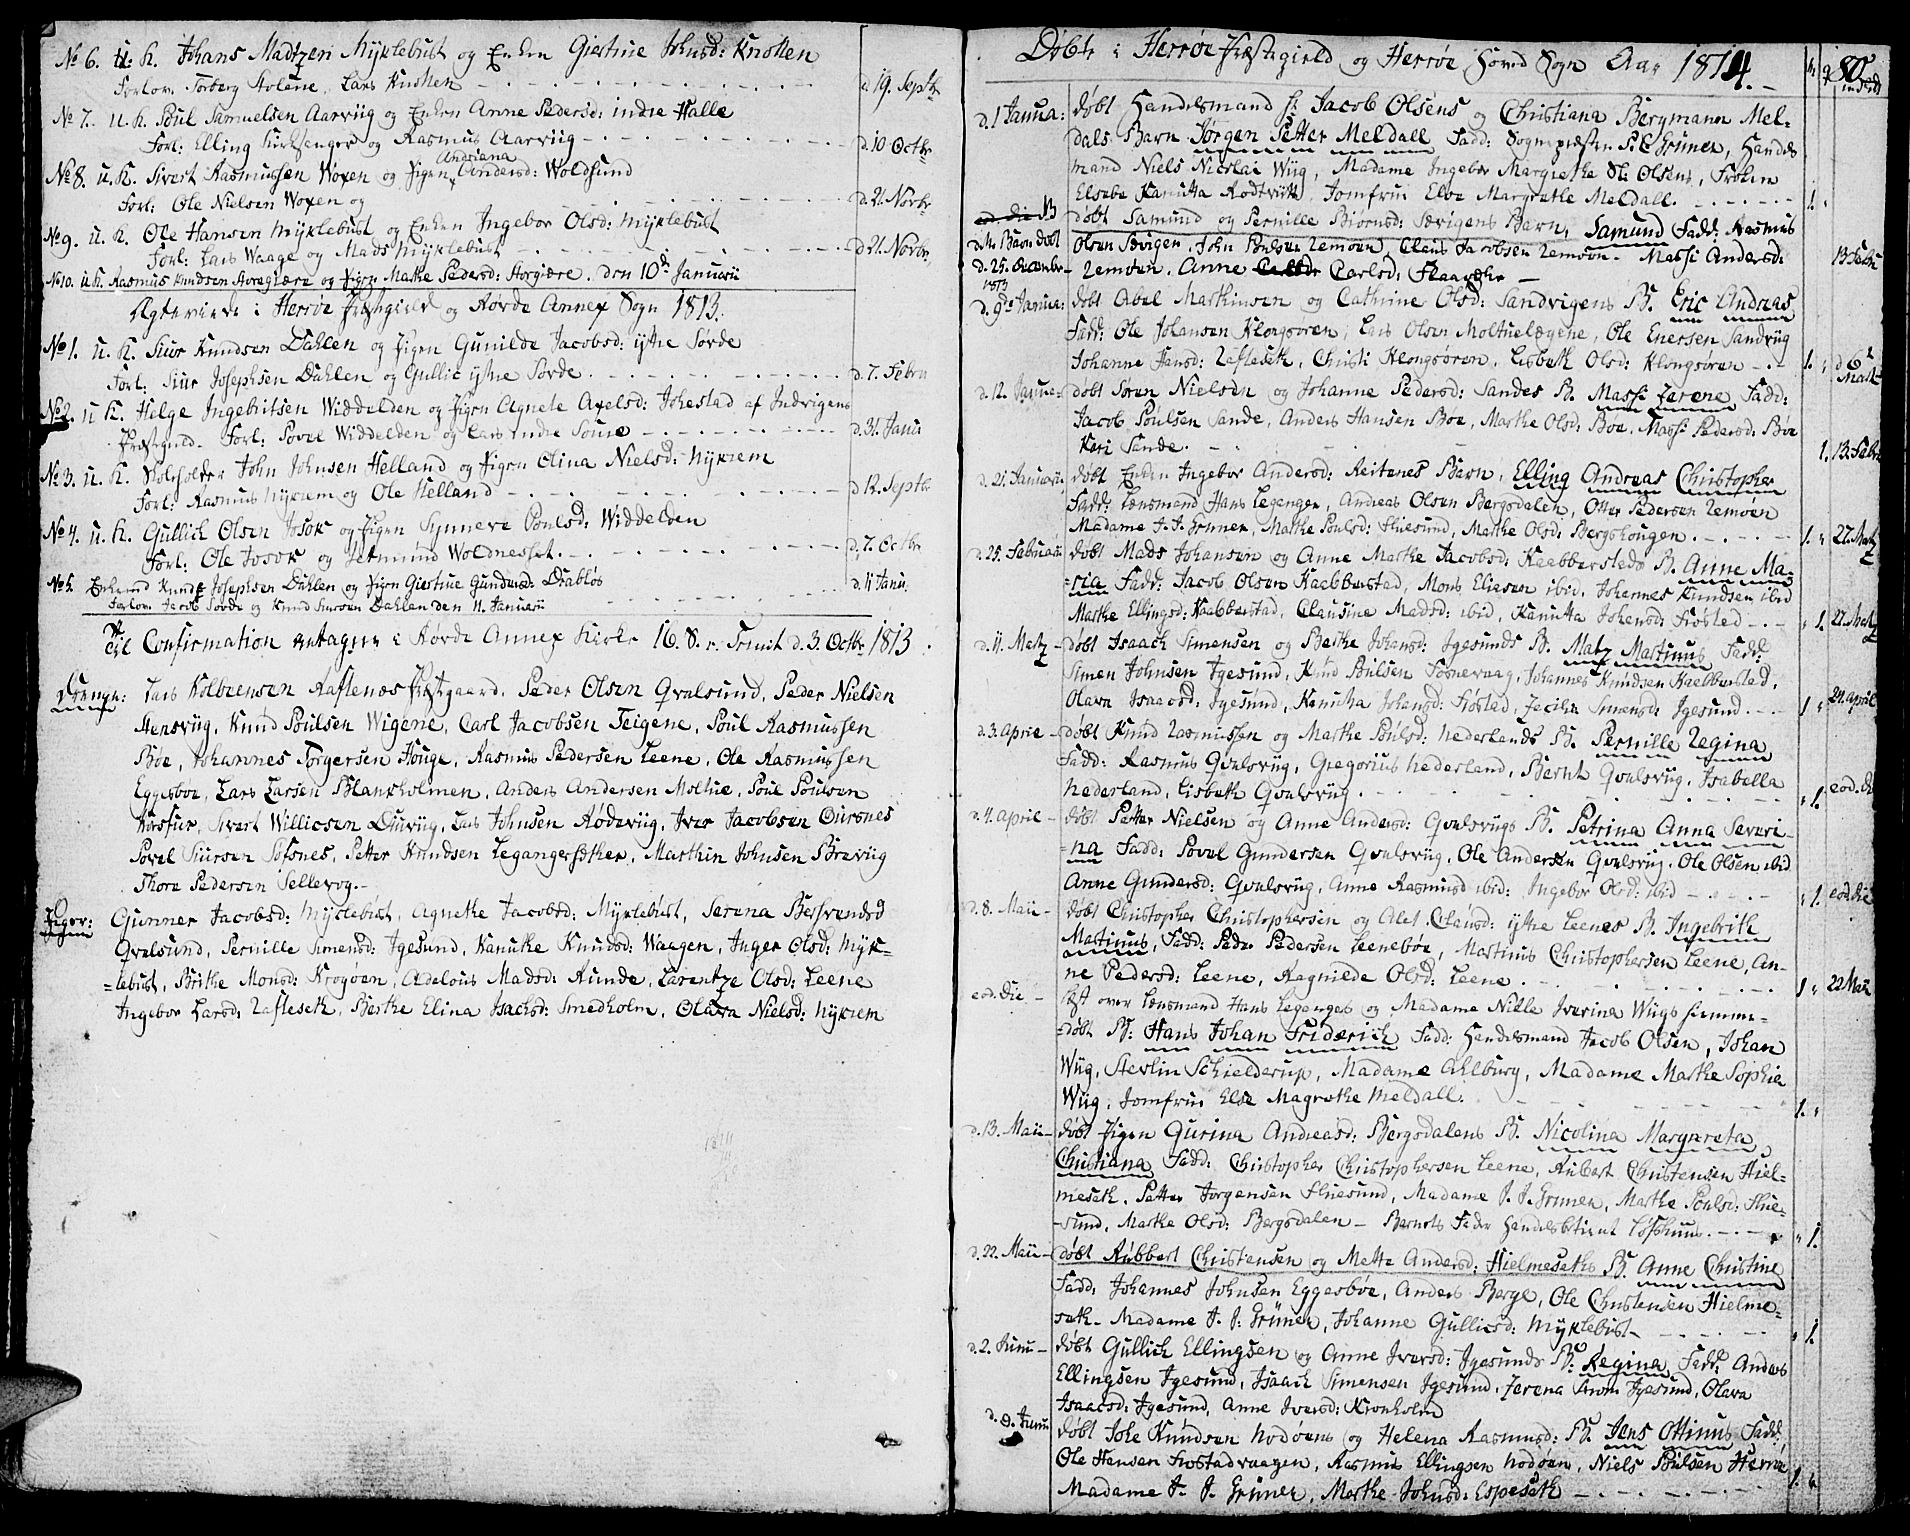 No 6. U: K. Johans Madtzen Myklebust og Enken Giertrue Johnsd: Knotten
Forlov. Torberg Stolene, Lars Knotten - d. 19. Septbr
No 7. U. K. Poul Samuelsen Aarviig og Enken Anne Pedersd: indre Halle
Forl: Elling Kirksenger og Rasmus Aarviig - d. 10 Octbr
No 8. U. K. Sivert Rasmussen Woxen og Pigen Andriana Andersd: Woldsund
Forl: Ole Nielsen Woxen og - d. 21. Novbr
No 9. U. K. Ole Hansen Myklebust og Enken Ingebor Olsd: Myklebust
Forl: Lars Waage og Mads Myklebust - d. 21. Novbr.
No 10. U K. Rasmus Knudsen og Pigen Marthe Pedersd: den 10de Januarii
Ægteviede i Herrøe Præstegield og Rovde Annex Sogn 1813.
No 1. U. K. Siur Knudsen Dahlen og Pigen Gunilde Jacobsd: ystre Sørde
Forl: Siur Josephsen Dahlen og Gullic ystre Sørde - d. 7. Febru
No 2. U K. Helge Ingebritsen Widdelden og Pigen Agnete Axelsd: Johestad af Indvigens
Præstegield - Forl: Povel Widdelden og Lars indre - d. 31. Janu
No 3. U. K. Skoleholder John Johnsen Helland og Pigen Olina Nielsd: Nykrem
Forl: Rasmus Nykrem og Ole Helland - d. 12. Septbr
No 4. U. K. Gullich Olsen Josok og Pigen Synneve Poulsd: Widdelden
Forl: Ole Josok og Jetmund Woldnesset. - d. 7. Octbr
No 5. Enkemd Knud Josephsen Dahlen og Pigen Giertrue Gundersd: Diabløs - d. 11 Janu:
Forlov: Jacob Sørde og Knud Siursen Dahlen den 11. Januarii
Til Confirmation antagne i Rovde Annex Kirke 16. S. p. Trinit d. 3. Octbr 1813.
Drenge: Lars Kolbeensen Raftenæs Præstgaard, Peder Olsen Qvalsund, Peder Nielsen
Hensviig, Knud Poulsen Wigene, Carl Jacobsen Teigene, Poul Rasmussen
Boe, Johannes Torgersen Houge, Rasmus Pedersen Leene, Ole Rasmussen
Eggesbøe, Lars Larsen Blankholmen, Anders Andersen Moltue, Poul Poulsen
Korssur, Sivert Willicsen Djuviig, Lars Johnsen Rødeviig, Iver Jacobsen Dursnes
Povel Siursen Søfsnes, Petter Knudsen Legangersæther, Marthin Johnsen Breviig
Thore Pedersen Sellevog.-
Piger: Gunner Jacobsd: Myklebust, Agnethe Jacobsd: Myklebust, Serena Bersvendsd
Qvalsund, Pernille Simensd: Igesund, Kanutte Knudsd: Waagen, Inger Olsd: Myk-
lebust, Brithe Monsd: Krogøen, Adelous Madsd: Runde, Larentze Olsd: Leene
Ingebor Larsd: Lafleseth, Berthe Elina Isachsd: Smedholm, Olava Nielsd: Nykrem
Døbte i Herrøe Præstegield og Herrøe Hoved Sogn Aar 1814.-
80
d. 1 Janua: døbt Handelsmand Hr Jacob Olsens og Christiana Bergmann Mel-
dals Barn Jørgen Petter Meldall Fadd: Sognepræsten P. C Grüner, Handels
mand Niels Nicolai Wiig, Madame Ingebor Margrethe Sl. Olsens, Frøken
Elsebe Kanutta Rodtvitt, Jomfrue Else Margrethe Meldall. - 1.
døbt Samund og Pernille Biørnsd: Sævigens Barn, Samund Fadd: Rasmus
d. 25. Decembr 1813 Olsen Sævigen, John Poulsen Lemoen, Claus Jacobsen Lemoen - Massi Andersd: 13 Febru
Lemøen. Anne Carlsd: Flaavæhr -
d. 9de Janua: døbt Abel Marthinsen og Cathrine Olsd: Sandvigens B. Eric Andreas
Fadd: Ole Johansen Klongsøren, Lars Olsen Moltuelegene, Ole Enersen Sandviig
Johanne Jansd: Lafleseth, Christi Klongsøren, Lisbeth Olsd: Klongsøren - 1. d 6te Martz
d. 12. Janua- døbt Søren Nielsen og Johanne Pedersd: Sandes B. Massi Serene Fadd:
Jacob Poulsen Sande, Anders Hansen Boe, Marthe Olsd: Boe, Massi Pedersd: Boe
Kari Sande. - 1. 13. Febr
d. 21. Januarii døbt Enken Ingebor Andersd: Reitenes Barn, Elling Andreas Christopher
Fadd: Lænsmand Hans Leganger, Andreas Olsen Bergsdalen, Otter Pedersen Lemoen
Madame J. J. Grüner, Marthe Poulsd: Fluesund, Marthe Olsd: Bergshougen. - 1. 27. Martz
d. 25. Februarii døbt Mads Johansen og Anne Marthe Jacobsd: Kaabbersteds B. Anne Ma-
ria Fadd: Jacob Olsen Kaabberstad, Mons Eliesen ibid, Johannes Knudsen ibid
Marthe Ellingsd: Kaabberstad, Clausine Madsd: ibid, Kanutta Johansd: Frøsted - 1. 27. Martz
d. 11. Martz- døbt Isaach Simensen og Berthe Johansd: Igesunds B. Matz Martinus Fadd:
Simen Johnsen Igesund, Knud Poulsen Fosnevaag, Johannes Knudsen Kaabberstad,
Olava Isaacsd: Igesund, Kanutta Johansd: Frøstad, Zecilia Simensd: Igesund. - 1 24. April
d. 3. Aprie - døbt Knud Rasmussen og Marthe Poulsd: Nederlands B. Pernille Regina
Fadd: Rasmus Qvalsviig, Gregorius Nederland, Bernt Qvalsviig, Isabella
Nederland, Lisbeth Qvalsviig. - 1. eod. die
d. 4. Aprie - døbt Petter Nielsen og Anne Andersd: Qvalsviigs B. Petrina Anna Severi-
na Fadd: Povel Gundersen Qvalsviig, Ole Andersen Qvalsviig, Ole Olsen ibid
Anne Gundersd: Qvalsviig, Anne Rasmusd ibid: Ingebor Olsd: ibid - 1. eod. die
d. 8. Maii - døbt Christopher Christophersen og Alet Clausd: ystre Leenes B. Ingebrith
Martinus, Fadd: Peder Pedersen Leenebøe, Martinus Christophersen Leene, An-
ne Pedersd: Leene, Ragnilde Olsd: Leene. - 1 22 Maii
eod. Die - læst over Lænsmand Hans Leganges og Madame Nille Iverina Wiigs hiemme-
døbt B: Hans Johan Friderich Fadd: Handelsmand Jacob Olsen, Johan
Wiig, Stevlin Schielderup, Madame Ahlburg, Madame Marthe Sophia
Wiig, Jomfrue Else Magrethe Meldall. - 1.
d. 13. Maii - døbt Pigen Gurina Andreasd: Bergsdalens B. Nicolina Margareta
Christiana, Fadd: Christopher Christophersen Leene, Rubert Christensen Hiel-
meseth, Petter Jorgensen Fluesund, Madame J. J. Grüner, Marthe Poulsd: Flue-
sund, Marthe Olsd: Bergsdalen - Barnets Fader Handelsbetient Løfshuus. - 1.
d. 22. Maii - døbt Rubbert Christensen og Mette Andersd: Hielmeseths B. Anne Christine
Fadd: Johannes Johnsen Eggesbøe, Anders Berge, Ole Christensen Hielme-
seth- Madame J. J. Grüner, Johanne Gullicsd: Myklebust - 1.
d. 2. Junii - døbt Gullich Ellingsen og Anne Iversd: Igesunds B: Regina Fadd: Anders
Ellingsen Igesund, Isaach Simensen Igesund, Serena Igesund, Olava
Isaacsd: Igesund, Anne Iversd: Kronholm
d. 9. Junii døbt Johe Knudsen Nodøens og Helena Rasmusd: B. Jens Ottinus Fadd:
Ole Hansen Frostadvaagen, Rasmus Ellingsen Nodøen, Niels Poulsen Herrøe
Madame J. J. Grüner, Marthe Johnsd: Espeseth - 1.